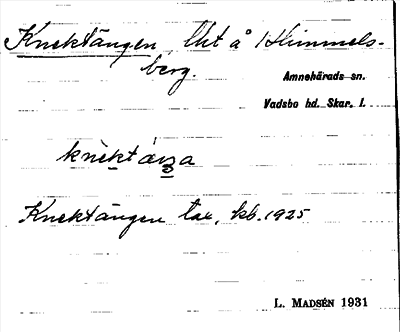 Knektängen, lht å Himmels-
berg.
Amnehärads sn.
Vadsbo hd. Skar. l.
Knektängen tax, kb. 1925
L. MADSÉN 1931